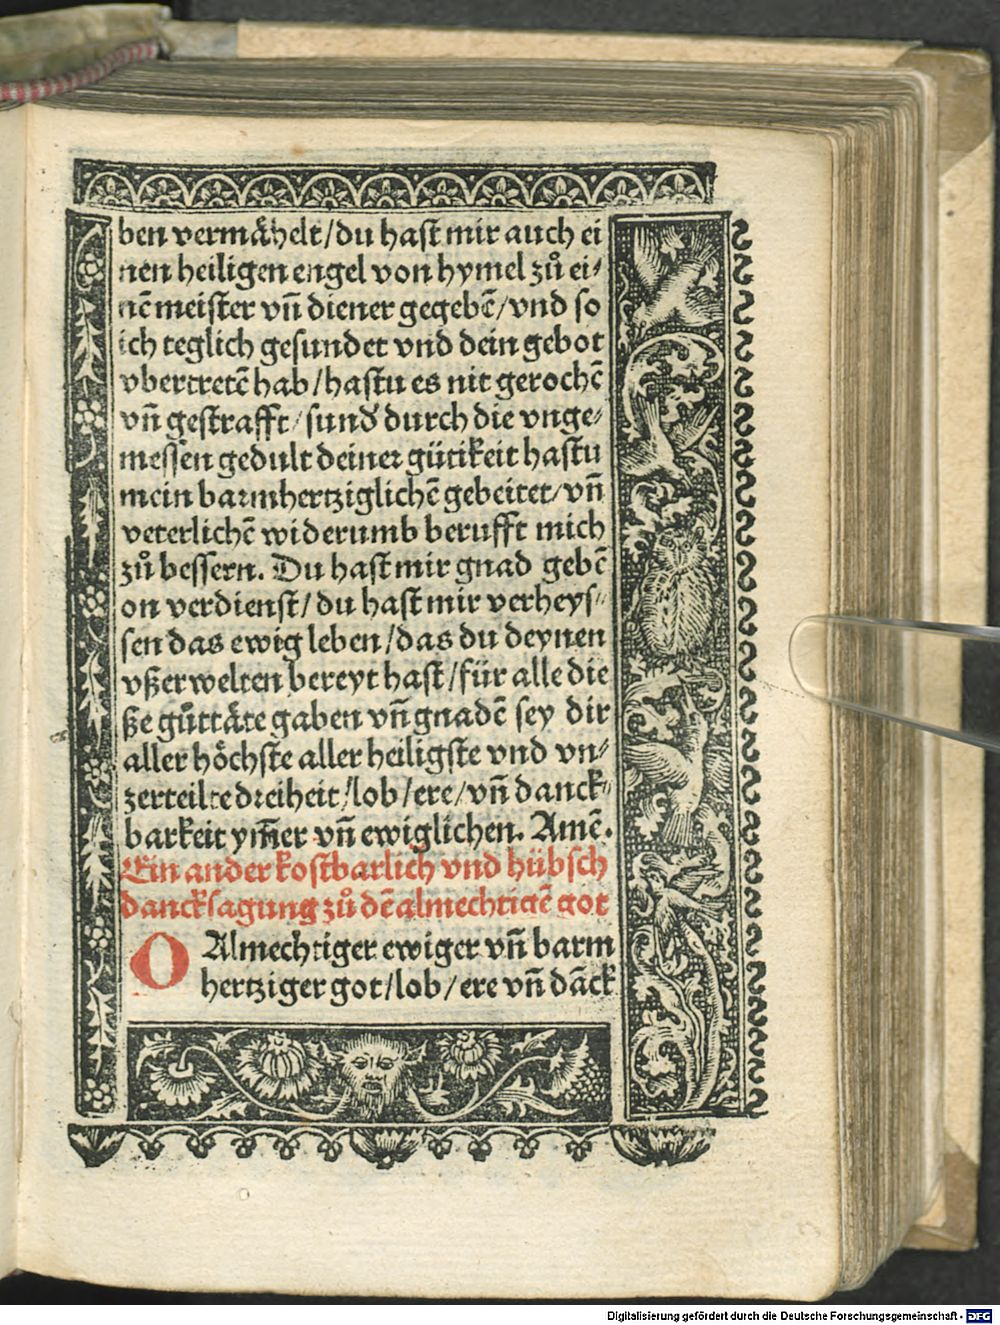 ben vermåhelt/du hast mir auch ei
nen heiligen engel von hymel zů ei⸗
nē meister vñ diener gegebē/vnd so
ich teglich gesundet vnd dein gebot
vbertretē hab/hastu es nit gerochē
vñ gestrafft/sund̕ durch die vnge⸗
messen gedult deiner gütikeit hastu
mein barmhertziglichē gebeitet/vñ
veterlichē widerumb berufft mich
zů bessern. Du hast mir gnad gebē
on verdienst/du hast mir verheys⸗
sen das ewig leben/das du deynen
vßerwelten bereyt hast/für alle die
ße gůttäte gaben vñ gnadē sey dir
aller höchste aller heiligste vnd vn⸗
zerteilte dreiheit/lob/ere/vñ danck⸗
barkeit ym̄er vñ ewiglichen. Amē.
Ein ander kostbarlich vnd hübsch
dancksagung zů dē almechtigē got
O Almechtiger ewiger vñ barm
hertziger got/lob/ere vñ dāck
Digitalisierung gefördert durch die Deutsche Forschungsgemeinschaft - DFG